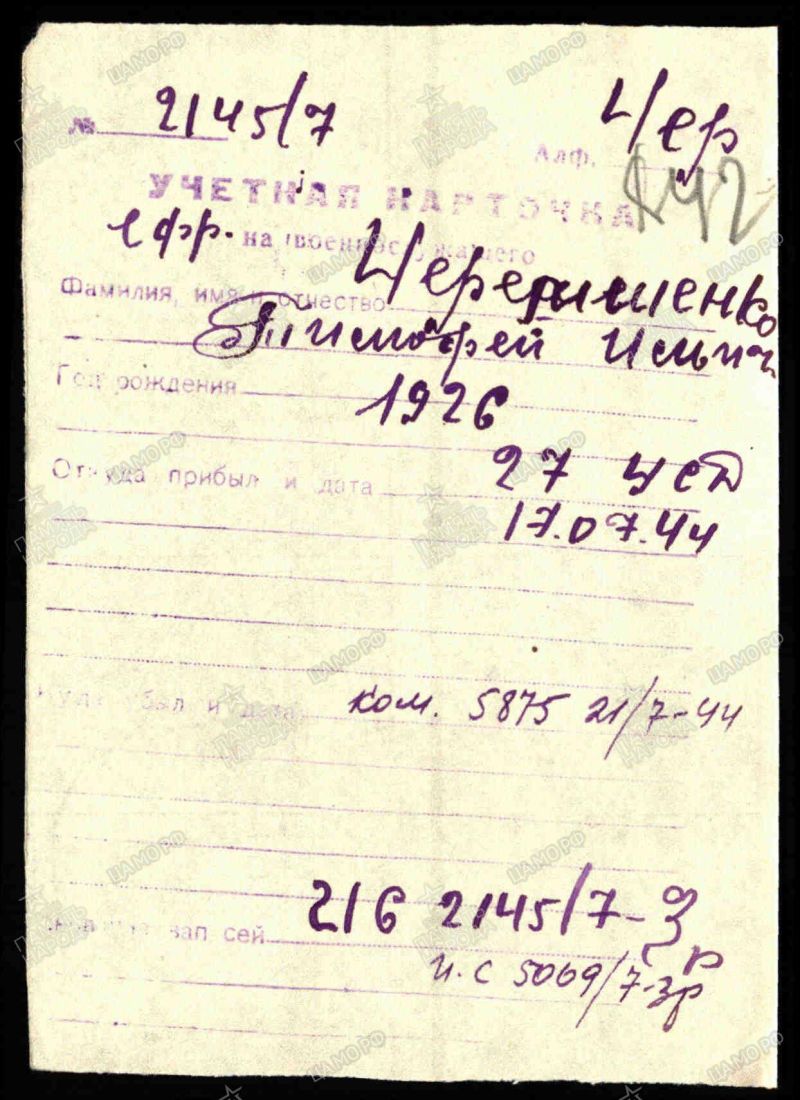 № 2145/7
Алф. Чер
УЧЕТНАЯ КАРТОЧКА
ефр. на военнослужащего
Фамилия, имя и отчество
Тимофей Ильич
Год рождения 1926
Откуда прибыл и дата 27 усд
17.07.44
Куда убыл и дата ком. 5875 21/7-44
зап сей 216 2145/7-зр
и.с 5069/7-зр